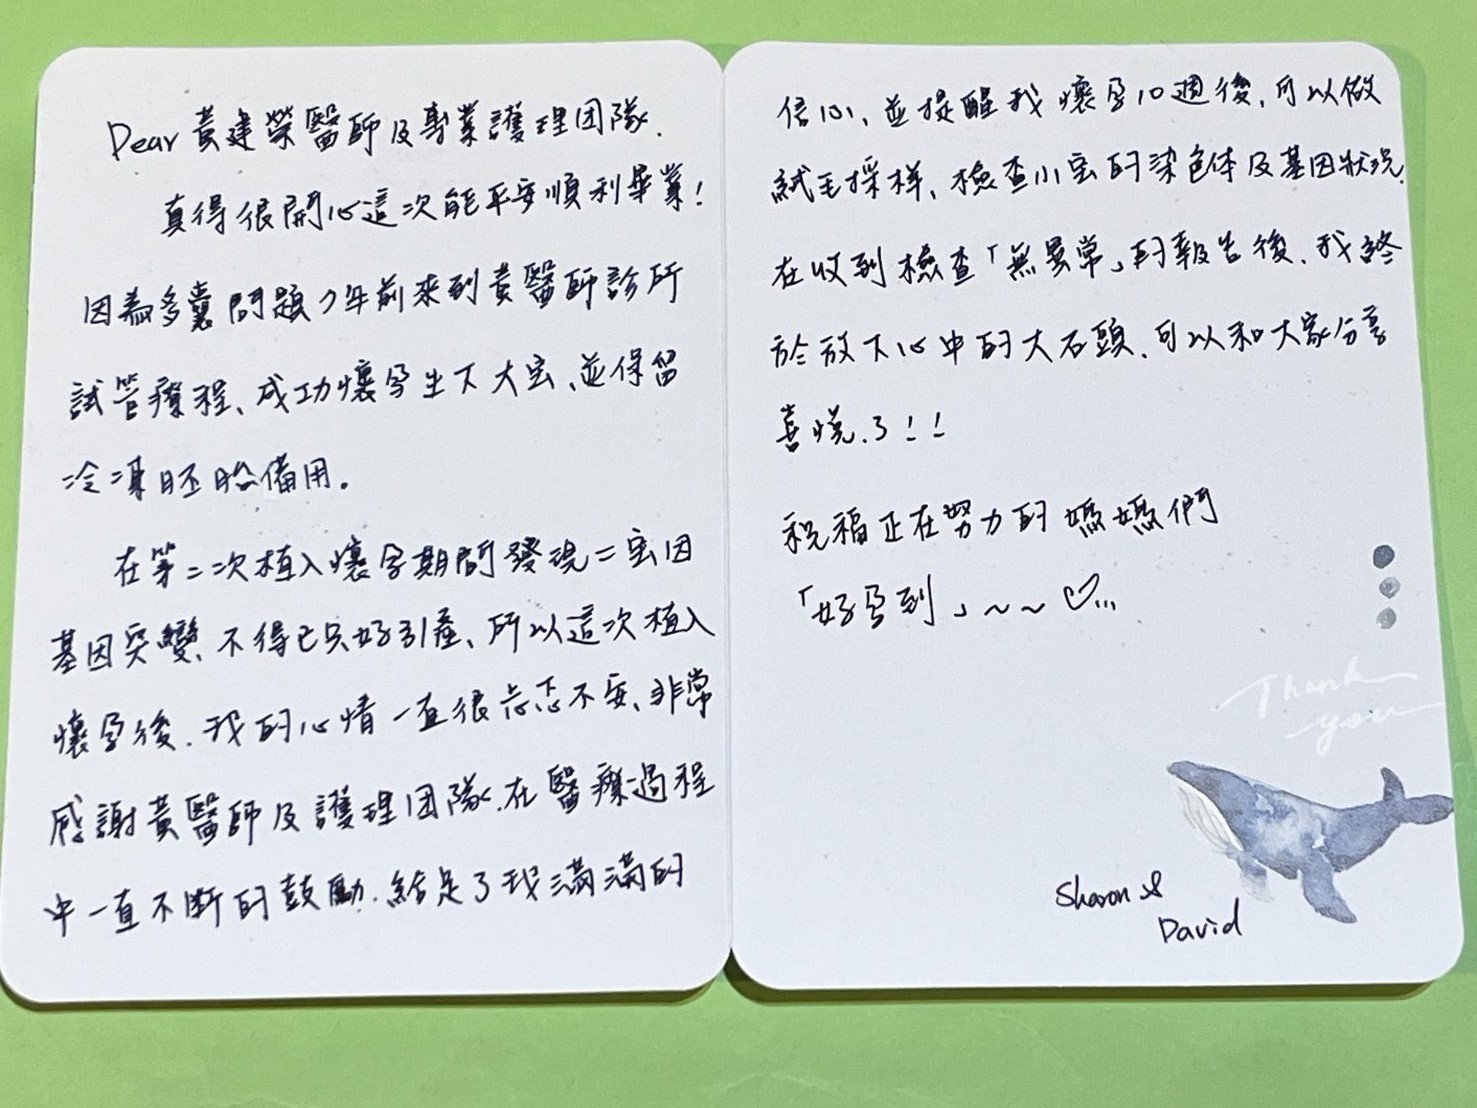 Dear 黃建榮醫師及專業護理团隊.
真得很開心這次能平安順利畢業!
因為多囊問題7年前來到黃醫師診所
試管療程、成功懷孕生下大宝、並保留
冷凍胚胎備用。
在第二次植入懷孕期間發現二宝因
基因突變、不得已只好引產、所以這次植入
懷孕後、我的心情一直很忐忑不安、非常
感謝黃醫師及護理团隊、在醫療過程
中一直不斷的鼓勵、給足了我滿滿的
信心、並提醒我懷孕10週後、可以做
絨毛採样、檢查小宝的染色体及基因狀況.
在收到檢查「無異常」的報告後、我終
於放下心中的大石頭、可以和大家分享
喜悅了!!
祝福正在努力的媽媽們
「好孕到」~~♡...
Thank
you
Sharon &
David